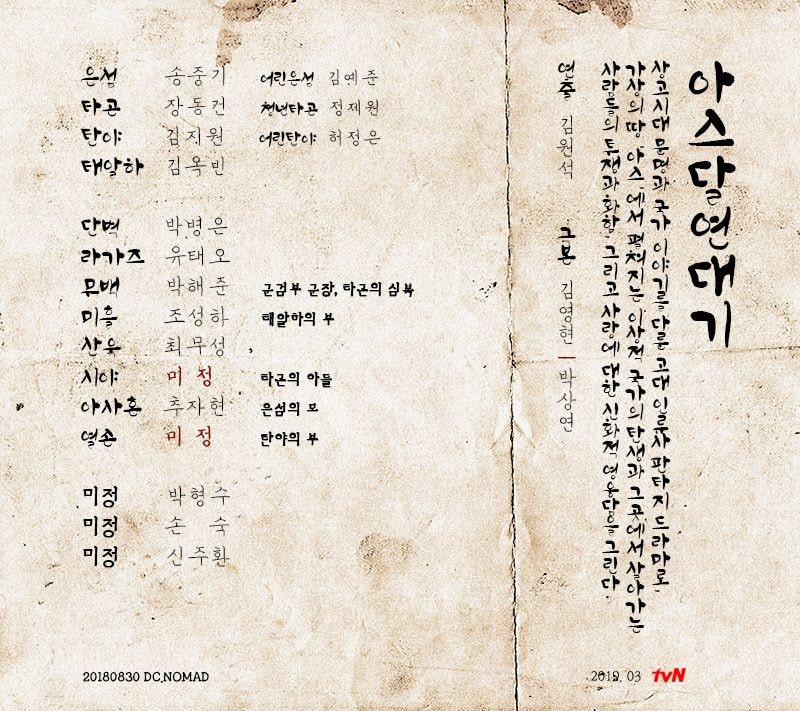 아스달 연대기
상고시대 문명과 국가 이야기를 다룬 고대 인류사 판타지 드라마로,
가상의 땅 '아스'에서 펼쳐지는 이상적 국가의 탄생과 그곳에서 살아가는
사람들의 투쟁과 화합 그리고 사랑에 대한 신화적 영웅담을 그린다.
연출 김원석 극본 김영현 | 박상연
은섬 송중기 어린은섬 김예준
타곤 장동건 청년타곤 정제원
탄야 김지원 어린탄야 허정은
태알하 김옥빈
단벽 박병은
라가즈 유태오
무백 박해준 군검부 군장, 타곤의 심복
미홀 조성하 태알하의 부
산웅 최무성
시야 미정 타곤의 아들
아사혼 추자현 은섬의 모
열손 미정 탄야의 부
미정 박형수
미정 손 숙
미정 신주환
20180830 DC.NOMAD
2019. 03 tvN